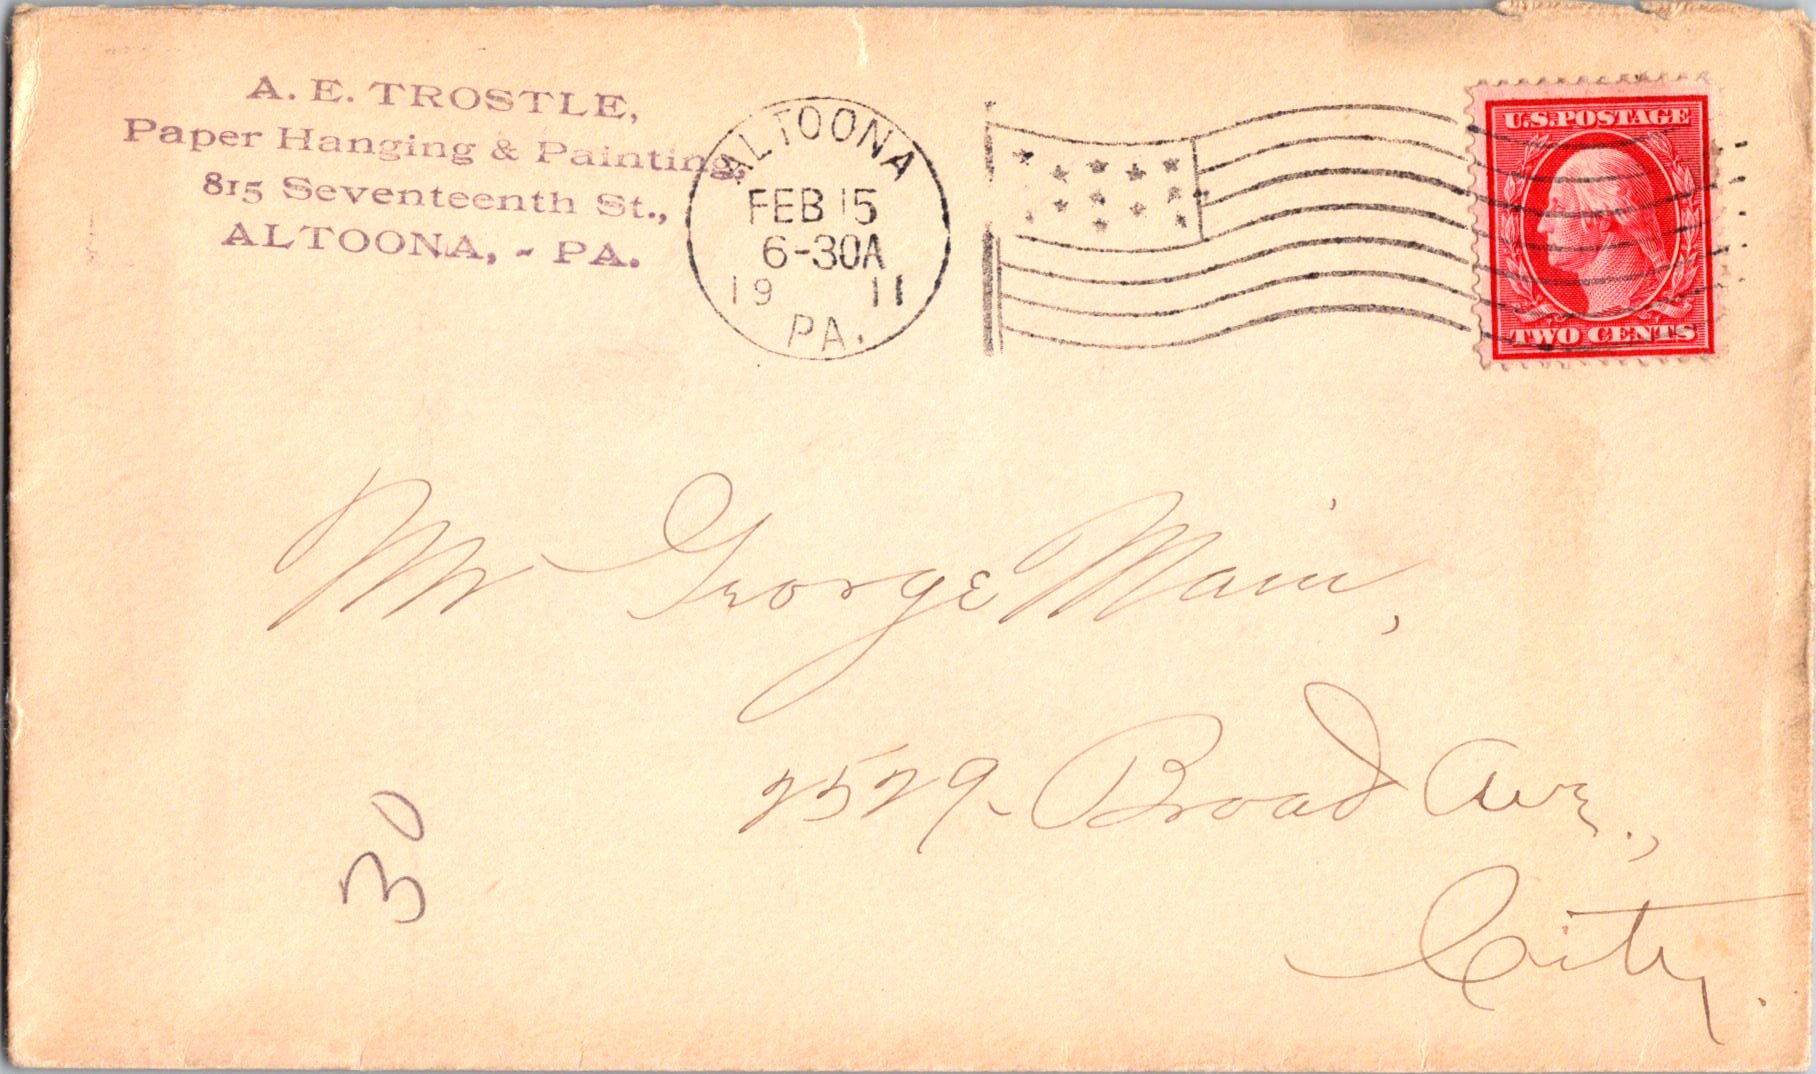 A. E. TROSTLE,
Paper Hanging & Painting,
815 Seventeenth St.,
ALTOONA, - PA.
ALTOONA
FEB 15
6-30A
19 11
PA.
U.S. POSTAGE
TWO CENTS
Mr George Main,
2529 Broad Ave.,
City.
30